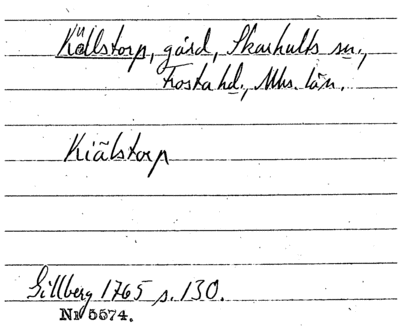 Källstorp, gård, Skarhults sn.,
Frosta hd., Mhs. län.
Kiälstorp
Gillberg 1765 s. 130.
Nr 5574.